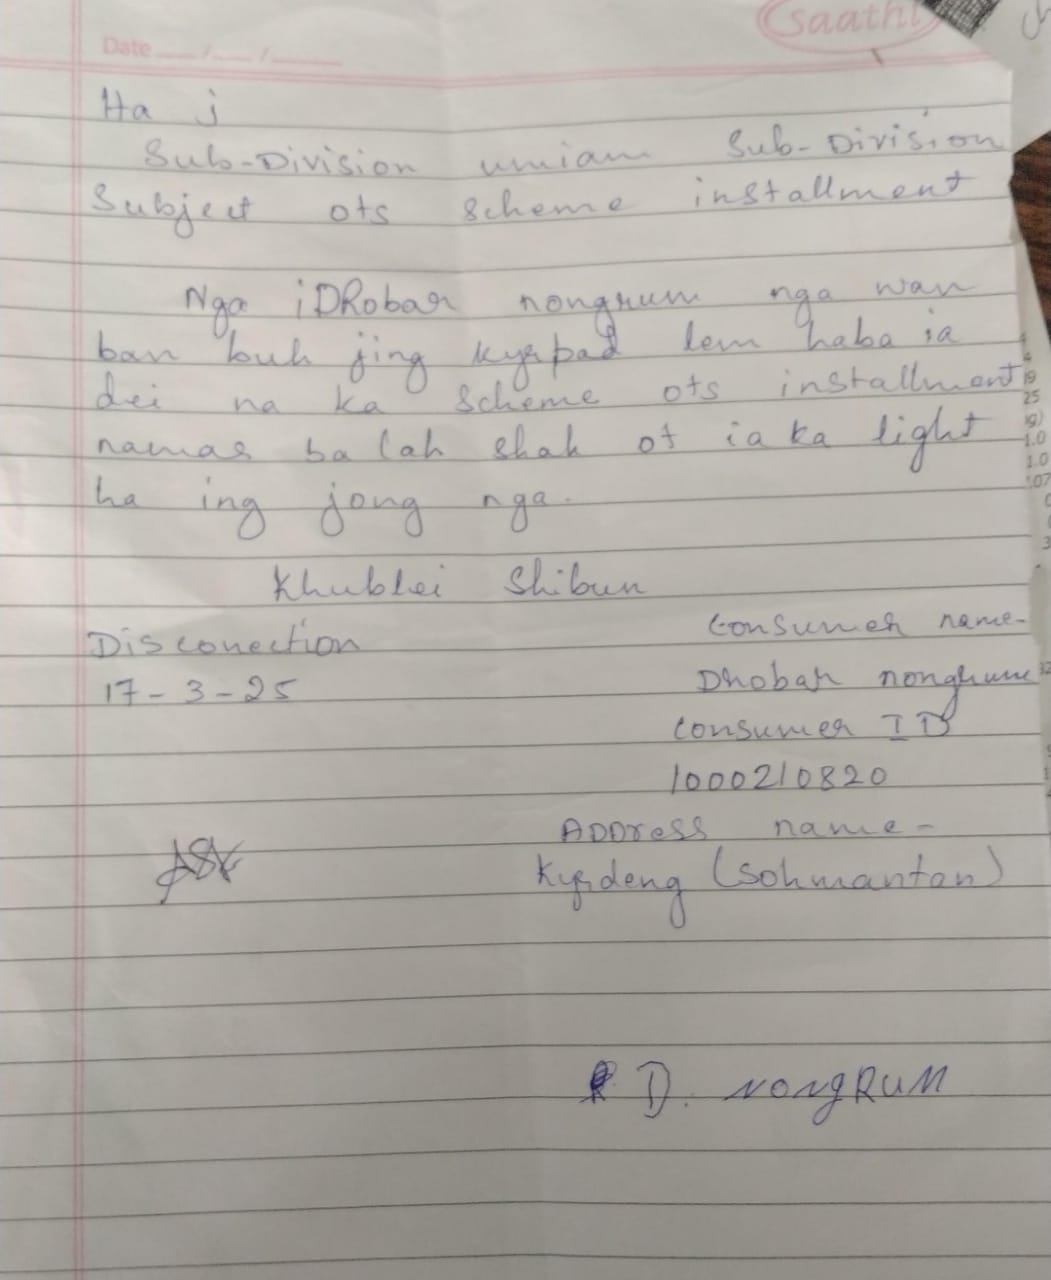 saathi
Date __/__/____
Ha j
Sub-Division umiam Sub-Division
Subject ots scheme installment
Nga i DRobar nongrum nga wan
ban buh jing kyrpad lem haba ia
dei na ka scheme ots installment
namar ba lah shah ot ia ka light
ha ing jong nga.
Khublei Shibun
Disconection
17-3-25
Consumer name-
Drobar nongrum
Consumer ID
1000210820
ADDress name-
Kyrdeng (Sohmantan)
D. NONGRUM